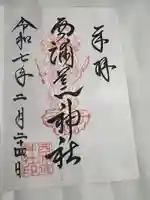 奉拝
西浦荒神社
令和七年二月二十四日